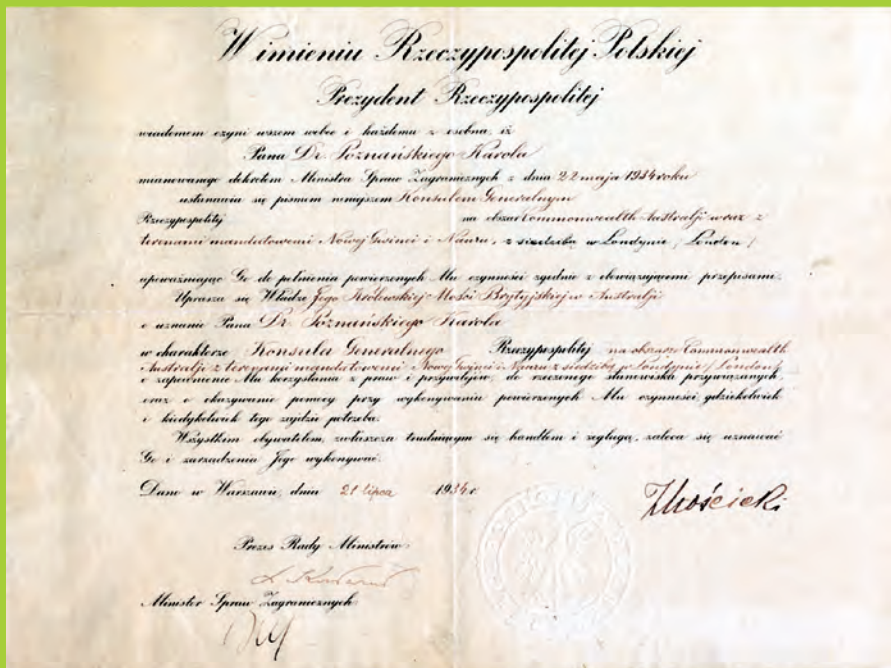 W imieniu Rzeczypospolitej Polskiej
Prezydent Rzeczypospolitej
wiadomem czyni wszem wobec i każdemu z osobna, iż
Pana Dr. Poznańskiego Karola
mianowanego dekretem Ministra Spraw Zagranicznych z dnia 22 maja 1934 roku
ustanawia się pismem niniejszem Konsulem Generalnym
Rzeczypospolitej na obszar Commonwealth Australji wraz z
terenami mandatowemi Nowej Gwinei i Nauru, z siedzibą w Londynie / London /
upoważniając Go do pełnienia powierzonych Mu czynności zgodnie z obowiązującemi przepisami.
Uprasza się Władze Jego Królewskiej Mości Brytyjskiej w Australji
o uznanie Pana Dr. Poznańskiego Karola
w charakterze Konsula Generalnego Rzeczypospolitej na obszarze Commonwealth
Australji z terenami mandatowemi Nowej Gwinei i Nauru z siedzibą w Londynie / London /
o zapewnienie Mu korzystania z praw i przywilejów, do rzeczonego stanowiska przywiązanych,
oraz o okazywanie pomocy przy wykonywaniu powierzonych Mu czynności, gdziekolwiek
i kiedykolwiek tego zajdzie potrzeba.
Wszystkim obywatelom, zwłaszcza trudniącym się handlem i żeglugą, zaleca się uznawać
Go i zarządzenia Jego wykonywać.
Dano w Warszawie, dnia 21 lipca 1934 r.
IMościcki
Prezes Rady Ministrów
Minister Spraw Zagranicznych